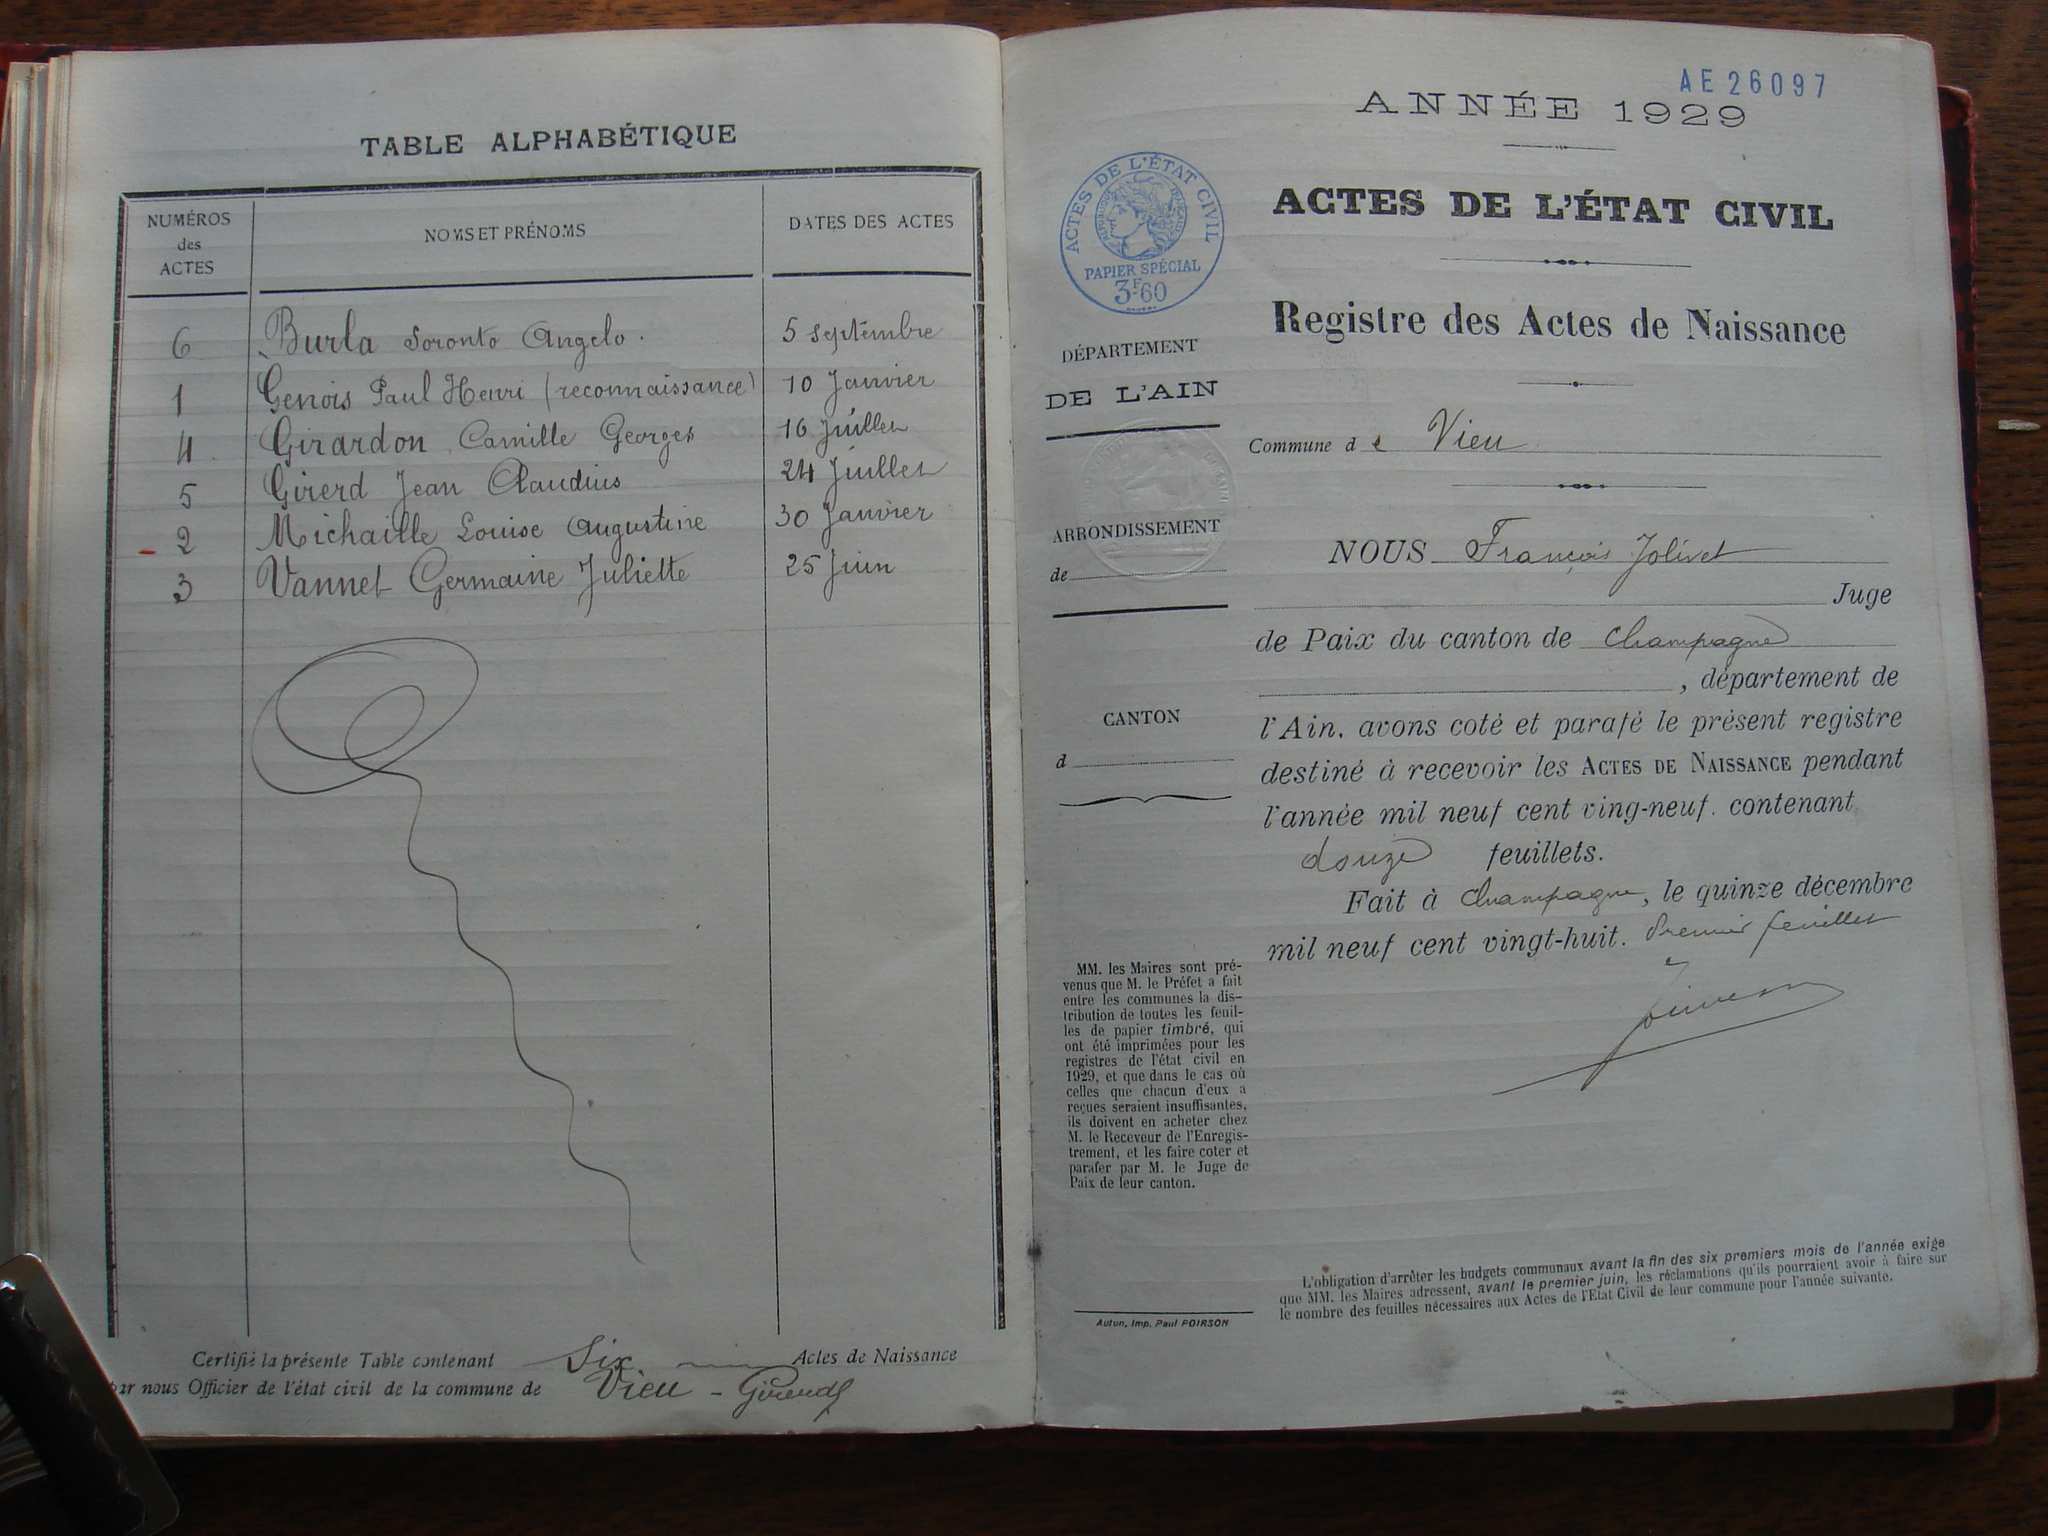 TABLE ALPHABÉTIQUE
NUMÉROS des ACTES
NOMS ET PRÉNOMS
DATES DES ACTES
6 Burla Soronto Angelo. 5 septembre
1 Genois Paul Henri (reconnaissance) 10 Janvier
4 Girardon Camille Georges 16 Juillet
5 Girerd Jean Claudius 24 Juillet
2 Michaille Louise Augustine 30 Janvier
3 Vannet Germaine Juliette 25 Juin
Certifié la présente Table contenant Six Actes de Naissance
par nous Officier de l'état civil de la commune de Vieu - Girerd
AE 26097
ANNÉE 1929
ACTES DE L'ÉTAT CIVIL
RÉPUBLIQUE FRANÇAISE
PAPIER SPÉCIAL
3F.60
ACTES DE L'ÉTAT CIVIL
Registre des Actes de Naissance
DÉPARTEMENT
DE L'AIN
Commune de Vieu
ARRONDISSEMENT
de
NOUS François Jolivet
Juge
de Paix du canton de Champagne
, département de
CANTON
d
l'Ain, avons coté et parafé le présent registre
destiné à recevoir les ACTES DE NAISSANCE pendant
l'année mil neuf cent ving-neuf. contenant
douze feuillets.
Fait à Champagne, le quinze décembre
mil neuf cent vingt-huit. Premier feuillet
MM. les Maires sont pré-
venus que M. le Préfet a fait
entre les communes la dis-
tribution de toutes les feuil-
les de papier timbré, qui
ont été imprimées pour les
registres de l'état civil en
1929, et que dans le cas où
celles que chacun d'eux a
reçues seraient insuffisantes,
ils doivent en acheter chez
M. le Receveur de l'Enregis-
trement, et les faire coter et
parafer par M. le Juge de
Paix de leur canton.
L'obligation d'arrêter les budgets communaux avant la fin des six premiers mois de l'année exige
que MM. les Maires adressent, avant le premier juin, les réclamations qu'ils pourraient avoir à faire sur
le nombre des feuilles nécessaires aux Actes de l'Etat Civil de leur commune pour l'année suivante.
Autun, Imp. Paul POIRSON